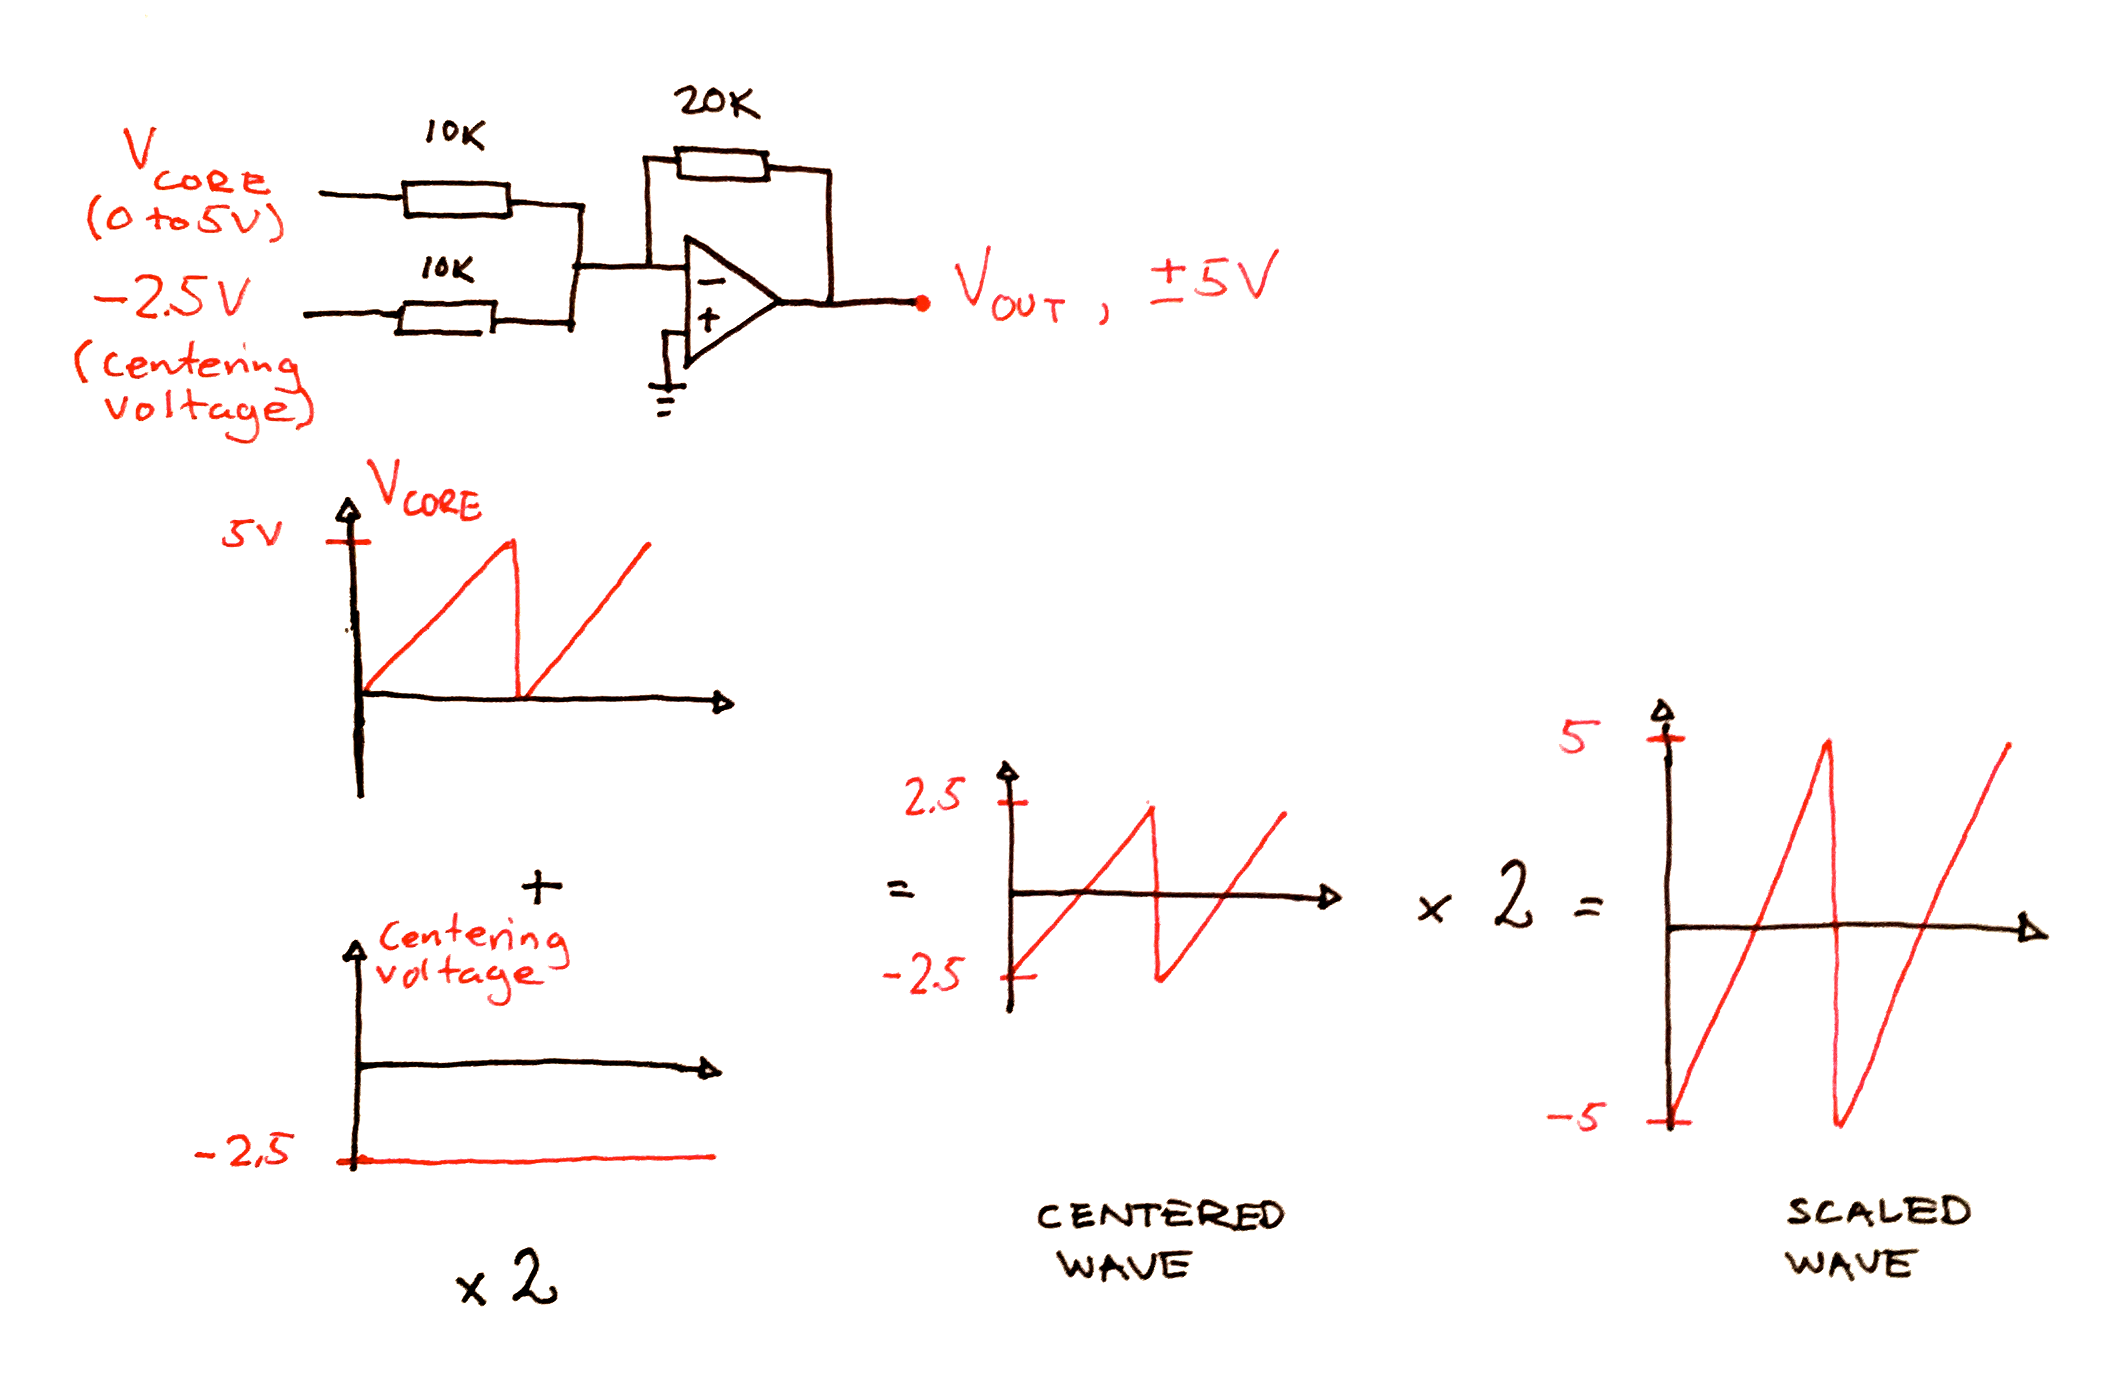 V CORE
(0 to 5V)
10K
20K
-2.5V
(centering
voltage)
10K
−
+
VOUT, ±5V
VCORE
5V
+
Centering
voltage
-2,5
x 2
=
2.5
-2.5
CENTERED
WAVE
x 2 =
5
-5
SCALED
WAVE